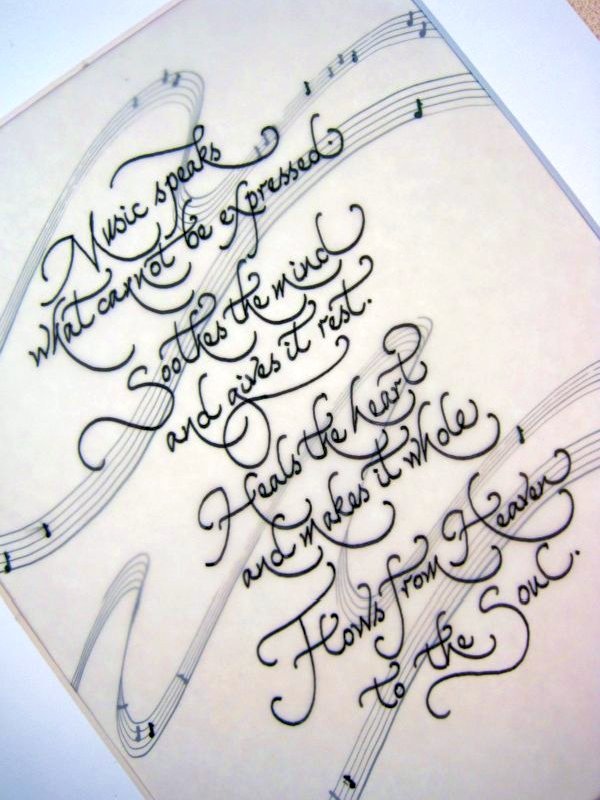 Music speaks
what cannot be expressed.
Soothes the mind
and gives it rest.
Heals the heart
and makes it whole
Flows from Heaven
to the Soul.